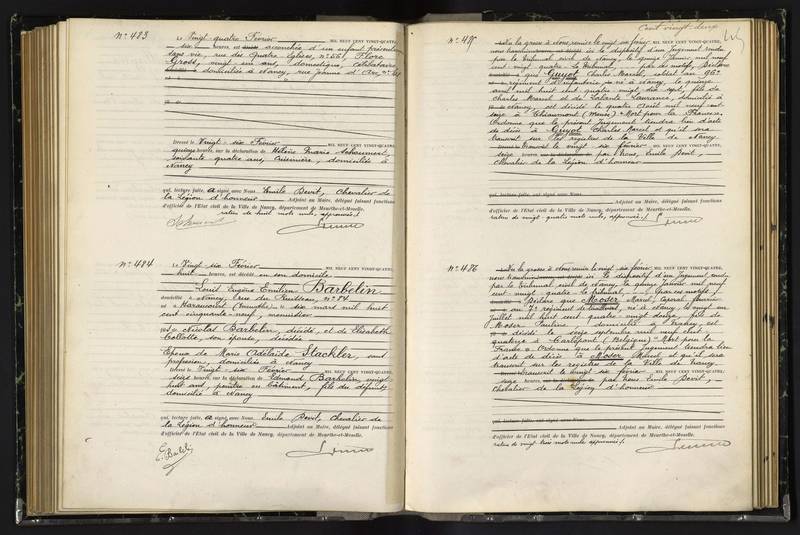 N° 483
Le Vingt quatre Février MIL NEUF CENT VINGT-QUATRE,
six heures, est accouchée d'un enfant présenté
sans vie, rue des Quatre Eglises, n° 561, Flore
Gross, vingt un ans, domestique, célibataire
domiciliée à Nancy, rue Jeanne d'Arc, n°
Dressé le Vingt six Février MIL NEUF CENT VINGT-QUATRE,
quinze heures, sur la déclaration de Hélène Marie
soixante quatre ans, cuisinière, domiciliée à
Nancy
qui, lecture faite, a signé avec Nous, Emile Devit, Chevalier de
la Légion d'honneur Adjoint au Maire, délégué faisant fonctions
d'officier de l'Etat civil de la Ville de Nancy, département de Meurthe-et-Moselle.
ratures de huit mots nuls, approuvées /.
N° 484
Le Vingt six Février MIL NEUF CENT VINGT-QUATRE,
huit heures, est décédé en son domicile
Louis Eugène Emilien Barbelin
domicilié à Nancy, rue du Ruisseau, n° 84
né à Haraucourt (Meurthe) le dix mars mil huit
cent cinquante-neuf, menuisier
de Nicolas Barbelin, décédé, et de Elisabeth
Collotte, son épouse, décédée
Epoux de Marie Adélaïde Stackler, sans
profession, domiciliée à Nancy
Dressé le Vingt six Février MIL NEUF CENT VINGT-QUATRE,
seize heures, sur la déclaration de Edmond Barbelin, vingt
huit ans, peintre en bâtiment, fils du défunt,
domicilié à Nancy
qui, lecture faite, a signé avec Nous, Emile Devit, Chevalier de
la Légion d'honneur Adjoint au Maire, délégué faisant fonctions
d'officier de l'Etat civil de la Ville de Nancy, département de Meurthe-et-Moselle.
Cent vingt deux
N° 485
Vu la grosse à Nous remise le vingt six février MIL NEUF CENT VINGT-QUATRE,
le dispositif d'un Jugement rendu
par le Tribunal civil de Nancy, le quinze Janvier mil neuf
cent vingt quatre. Le Tribunal par ces motifs, Déclare
que Guyot Charles Marcel, soldat au 96e
régiment d'Infanterie né à Nancy, le quinze
avril mil huit cent quatre vingt dix sept, fils de
Charles Marcel et de Lalante Laurance, domicilié à
Nancy, est décédé le quatre Août mil neuf cent
seize à Thiaumont (Meuse) "Mort pour la France",
Ordonne que le présent Jugement tiendra lieu d'acte
de décès à Guyot Charles Marcel et qu'il sera
transcrit sur les registres de la Ville de Nancy
Transcrit le vingt six février MIL NEUF CENT VINGT-QUATRE,
seize heures, par Nous, Emile Devit,
Chevalier de la Légion d'honneur
qui, lecture faite, ont signé avec Nous
Adjoint au Maire, délégué faisant fonctions
d'officier de l'Etat civil de la Ville de Nancy, département de Meurthe-et-Moselle.
ratures de vingt-quatre mots nuls, approuvées /.
N° 486
Vu la grosse à Nous remise le vingt six février MIL NEUF CENT VINGT-QUATRE,
le dispositif d'un Jugement rendu
par le Tribunal civil de Nancy, le quinze Janvier mil neuf
cent vingt quatre - Le Tribunal - par ces motifs,
Déclare que Moser Marcel, Caporal fourrier
au 7e régiment de tirailleurs, né à Nancy, le vingt
Juillet mil huit cent quatre-vingt douze, fils de
Moser Pauline, domicilié à Nancy, est
décédé le seize septembre mil neuf cent
quatorze à Carlepont (Belgique) "Mort pour la
France". Ordonne que le présent Jugement tiendra lieu
d'acte de décès à Moser Marcel et qu'il sera
transcrit sur les registres de la Ville de Nancy
Transcrit le vingt six février MIL NEUF CENT VINGT-QUATRE,
seize heures, par Nous, Emile Devit,
Chevalier de la Légion d'honneur
qui, lecture faite, ont signé avec Nous
Adjoint au Maire, délégué faisant fonctions
d'officier de l'Etat civil de la Ville de Nancy, département de Meurthe-et-Moselle.
ratures de vingt-trois mots nuls approuvées /.